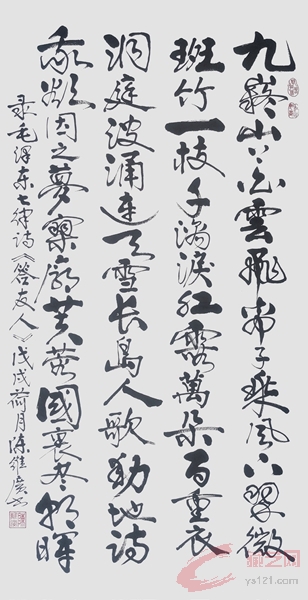 九嶷山上白雲飛帝子乘风下翠微
斑竹一枝千滴淚红霞萬朵百重衣
洞庭波涌連天雪长島人歌動地詩
我欲因之夢寥廓芙蓉國裏盡朝暉
录毛泽东七律诗《答友人》戊戌荷月陈维
ys121.com